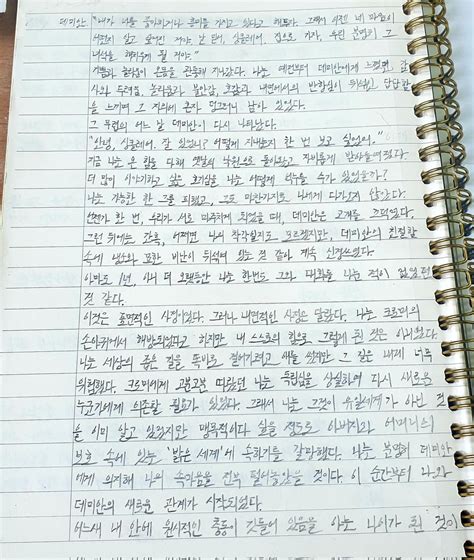 데미안 "내가 너를 좋아하거나 흥미를 가지고 있다고 해두자. 그래서 이젠 네 마음이
어떤지 알고 싶어진 거야. 난 싱클레어, 집으로 가자, 우린 분명히 그
녀석을 해치우게 될 거야."
기쁨과 놀라움이 온몸을 관통해 지나갔다. 나는 예전부터 데미안에게 느꼈던, 감
사와 두려움, 놀라움과 불안감, 호감과 내면에서의 반항심이 뒤섞인 답답함
을 느끼며 그 자리에 혼자 덩그러니 남아 있었다.
그 무렵의 어느 날 데미안이 다시 나타났다.
"안녕, 싱클레어. 잘 있었니? 어떻게 지냈는지 한 번 보고 싶었어."
지금 나는 온 힘을 다해 옛날의 낙원으로 돌아왔고 자비롭게 받아들여졌다
더 많이 이야기하고 싶은 호기심을 나는 어떻게 억누를 수가 있었을까?
나는 가능한 한 그를 피했고, 그도 마찬가지로 나에게 다가오지 않았다.
언젠가 한 번, 우리가 서로 마주치게 되었을 때, 데미안은 고개를 끄덕였다.
그런 뒤에는 간혹, 어쩌면 나의 착각일지도 모르겠지만, 데미안의 친절함
속에 냉소와 묘한 비난이 뒤섞여 있는 것 같아 계속 신경쓰였다.
아마도 1년, 아니 더 오랫동안 나는 한번도 그와 대화를 나눈 적이 없었던
것 같다.
이것은 표면적인 사정이었다. 그러나 내면적인 사정은 달랐다. 나는 크로머의
손아귀에서 해방되었다고 하지만 내 스스로의 힘으로 그렇게 된 것은 아니었다.
나는 세상의 좁은 길을 똑바로 걸어가려고 애를 썼지만 그 길은 내게 너무
위험했다. 크로머에게 고분고분 따랐던 나는 독립심을 상실하여 다시 새로운
누군가에게 의존할 필요가 있었다. 그래서 나는 그것이 유일세계가 아닌 것
을 이미 알고 있었지만 맹목적이다 싶을 정도로 아버지와 어머니의
보호 속에 있는 '밝은 세계'에 속하기를 갈망했다. 나는 분명히 데미안
에게 의지해 나의 속마음을 전부 털어놓았을 것이다. 이 순간부터 나와
데미안의 새로운 관계가 시작되었다.
어느새 내 안에 원시적인 충동이 깃들어 있음을 아는 나이가 된 것이